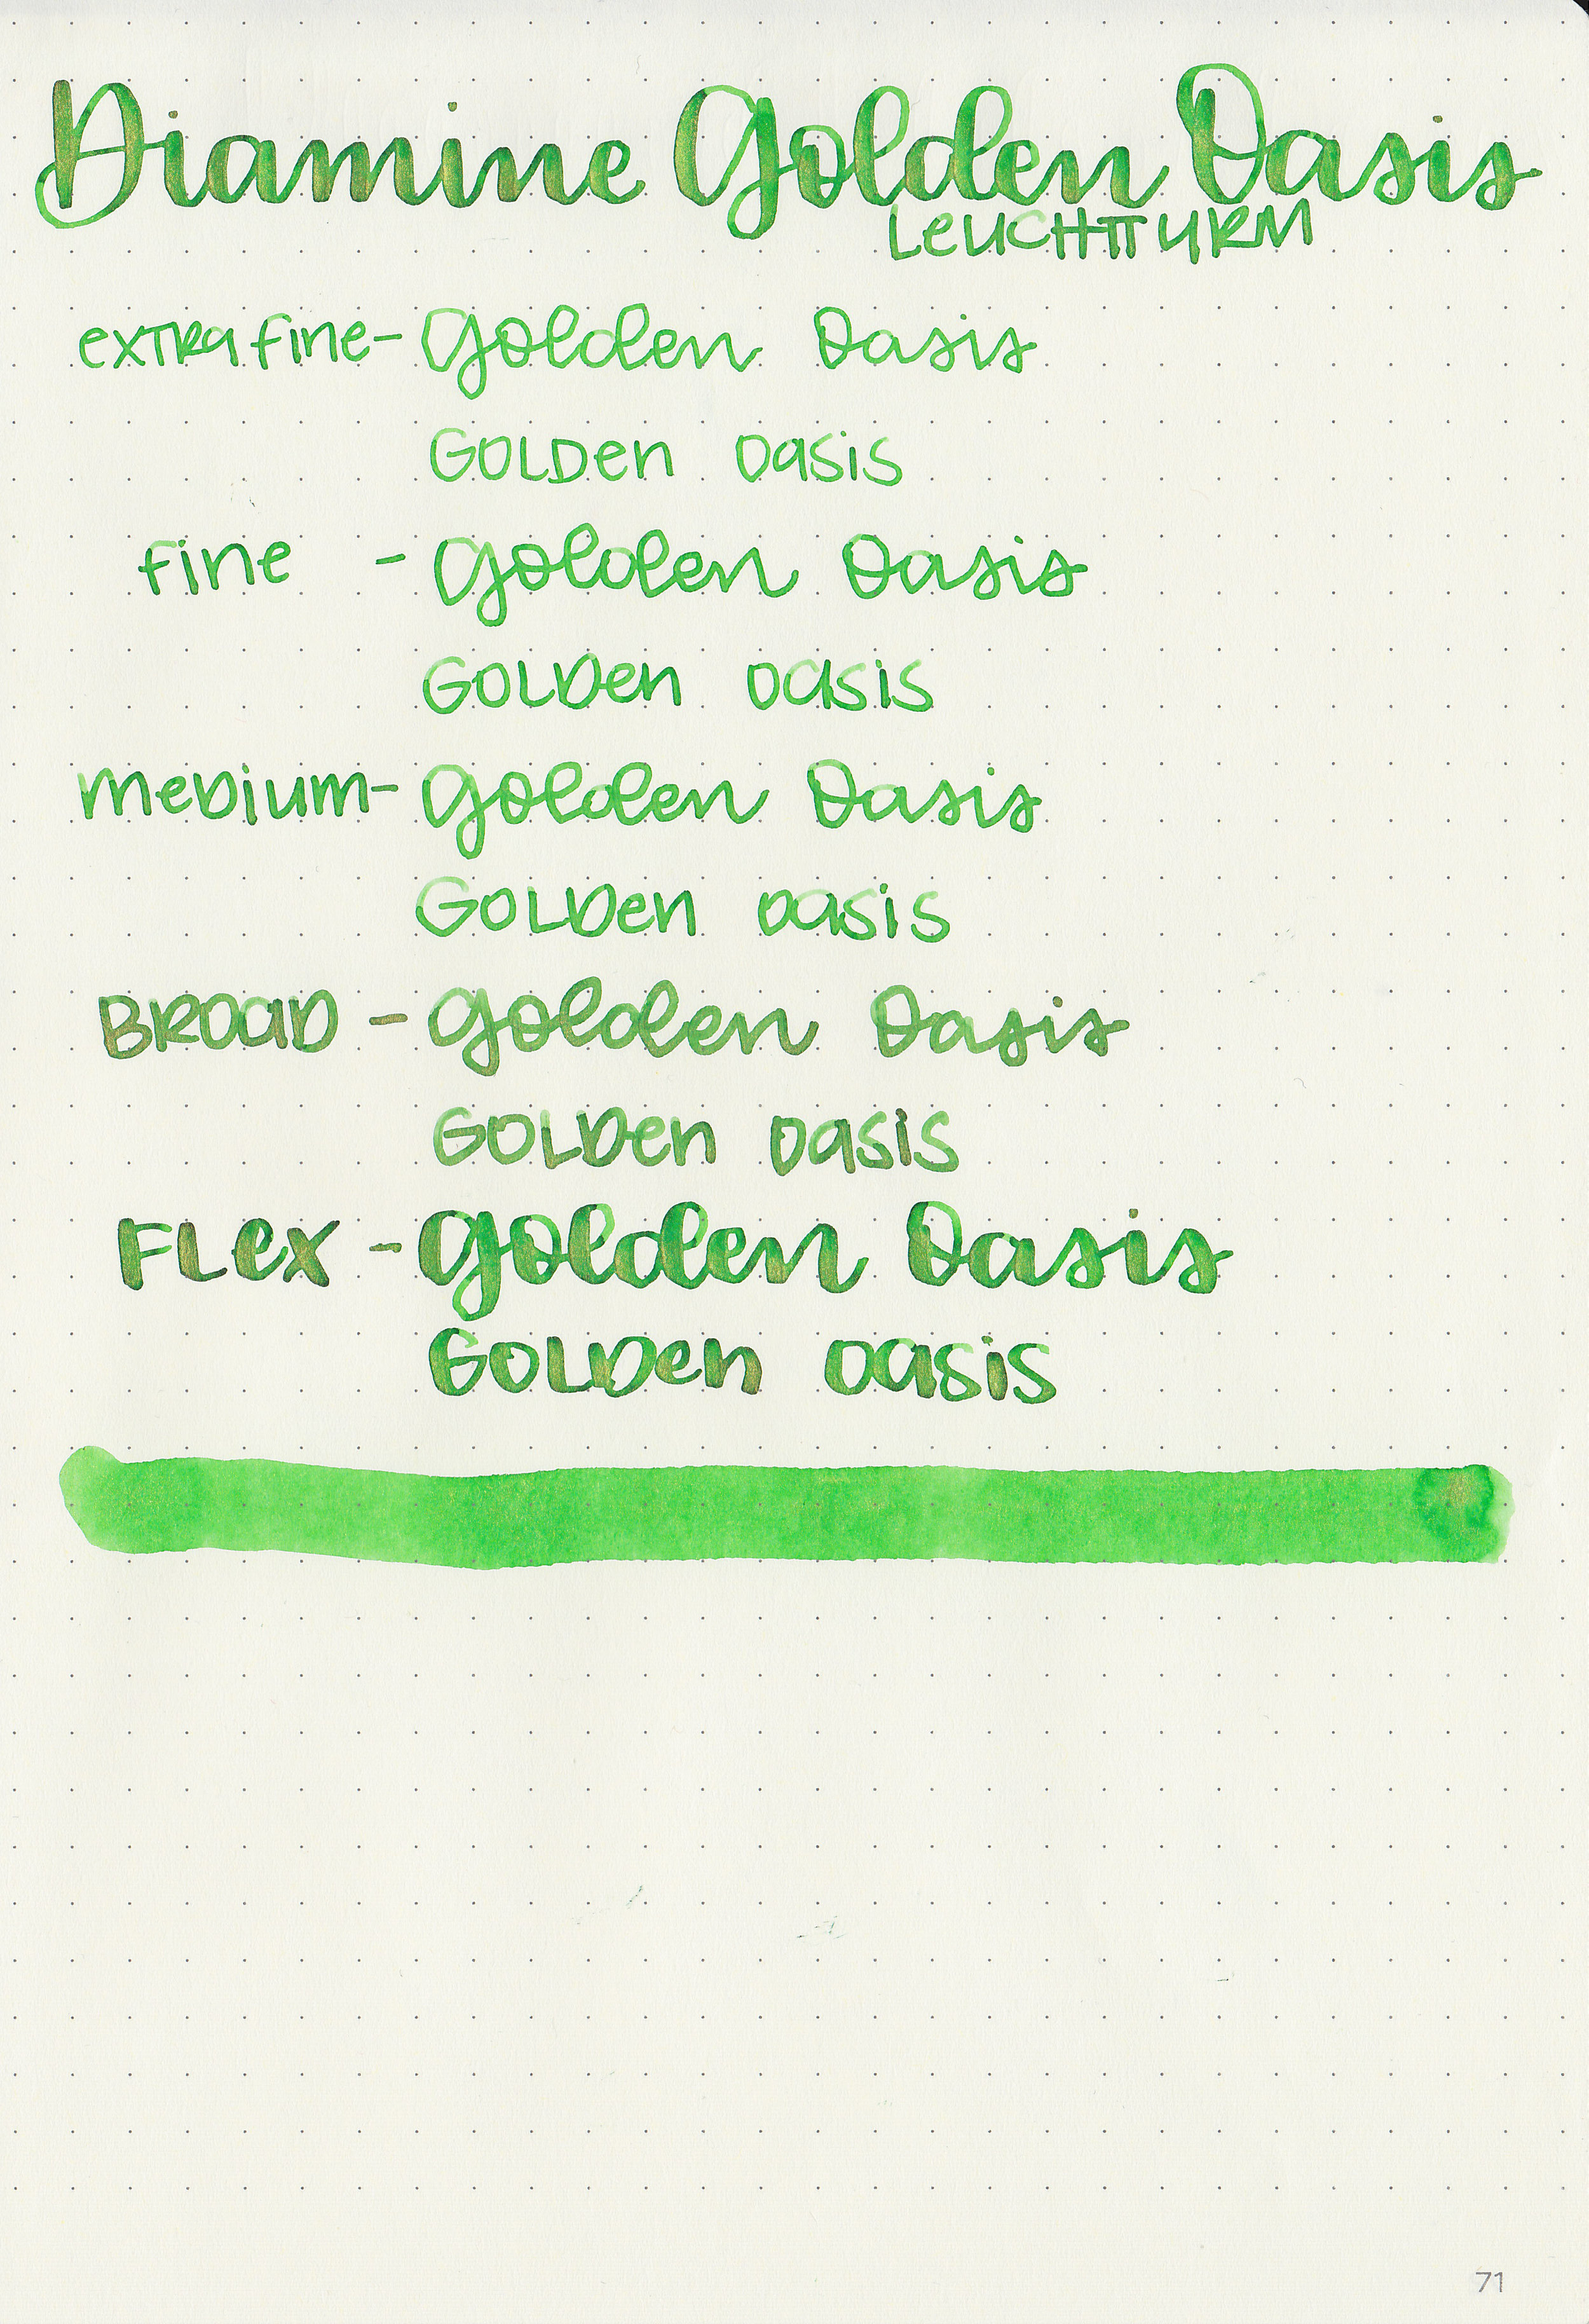 Diamine Golden Oasis
LEUCHTTURM
EXTRA Fine - Golden Oasis
GOLDen Oasis
Fine - Golden Oasis
GOLDen Oasis
MeDium - Golden Oasis
GOLDen Oasis
BROAD - Golden Oasis
GOLDen Oasis
FLex - Golden Oasis
GOLDen Oasis
71